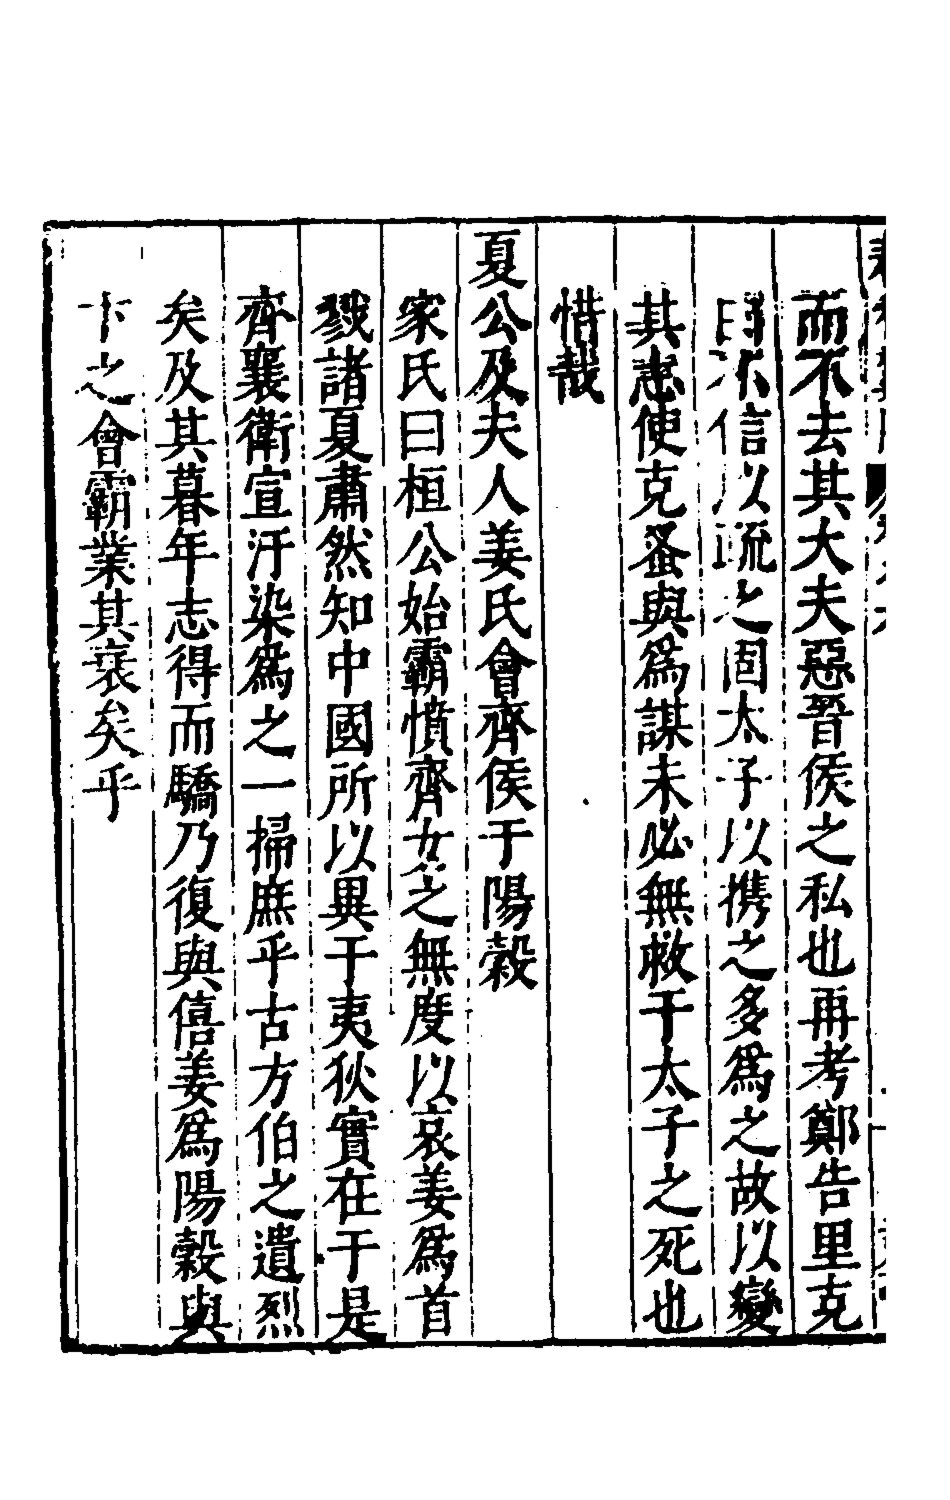 而不去其大夫惡晉侯之私也再考鄭告里克
曰不信以疏之固太子以携之多爲之故以變
其志使克蚤與爲謀未必無救于太子之死也
惜哉
夏公及夫人姜氏會齊侯于陽穀
家氏曰桓公始霸憤齊女之無度以哀姜爲首
戮諸夏肅然知中國所以異于夷狄實在于是
齊襄衛宣汙染爲之一掃庶乎古方伯之遺烈
矣及其暮年志得而驕乃復與僖姜爲陽穀與
卞之會霸業其衰矣乎